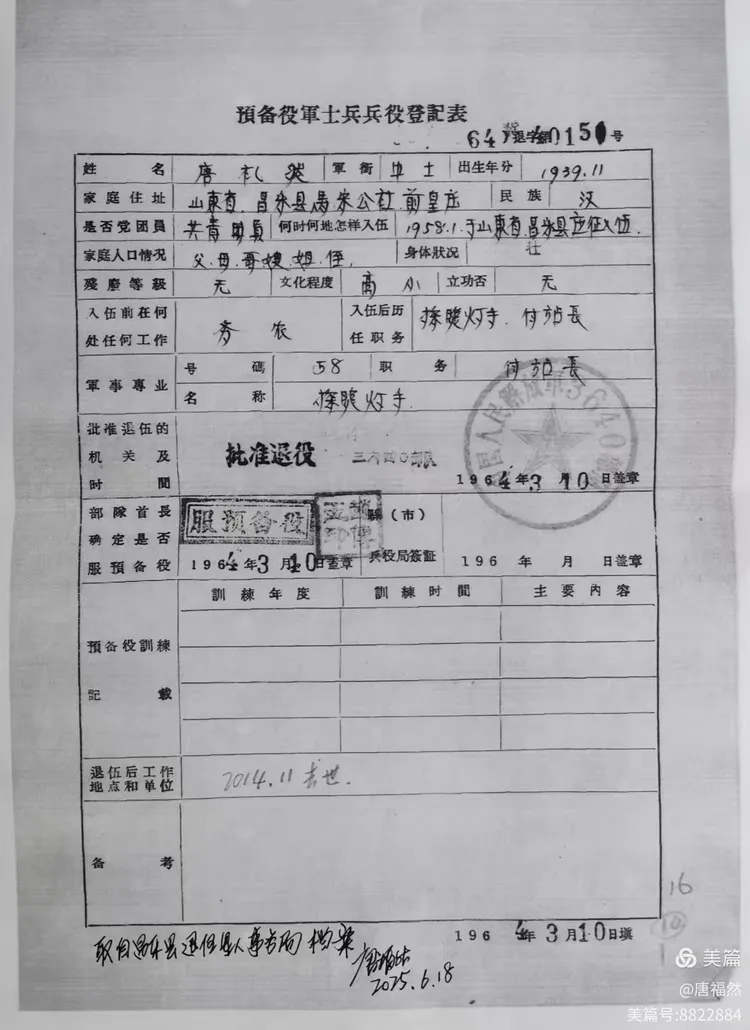 預备役軍士兵兵役登記表
64 退字第40151号
姓名 唐礼 軍衔 中士 出生年分 1939.11
家庭住址 山東省昌乐县馬宋公社前皇庄 民族 汉
是否党団員 共青団員 何时何地怎样入伍 1958.1.于山東省昌乐县应征入伍.
家庭人口情况 父.母.哥嫂.姐.侄. 身体狀况 壮
殘廢等級 无 文化程度 高小 立功否 无
入伍前在何处任何工作 务农 入伍后历任职务 探照灯手.付站長
軍事專业 号碼 58 职务 付站長
名称 探照灯手.
批准退伍的机关及时間 批准退役 三六四0部队 1964年3月10日盖章
中国人民解放軍3640部队
部隊首長确定是否服預备役 服預备役 1964年3月10日盖章
縣(市)兵役局簽証 196 年 月 日盖章
預备役訓練記載 訓練年度 訓練时間 主要内容
退伍后工作地点和单位 2014.11去世.
备考
1964年3月10日填
取自昌乐县退役軍人事务局档案
唐福然
2025.6.18
16
14
美篇
@唐福然
美篇号:8822884